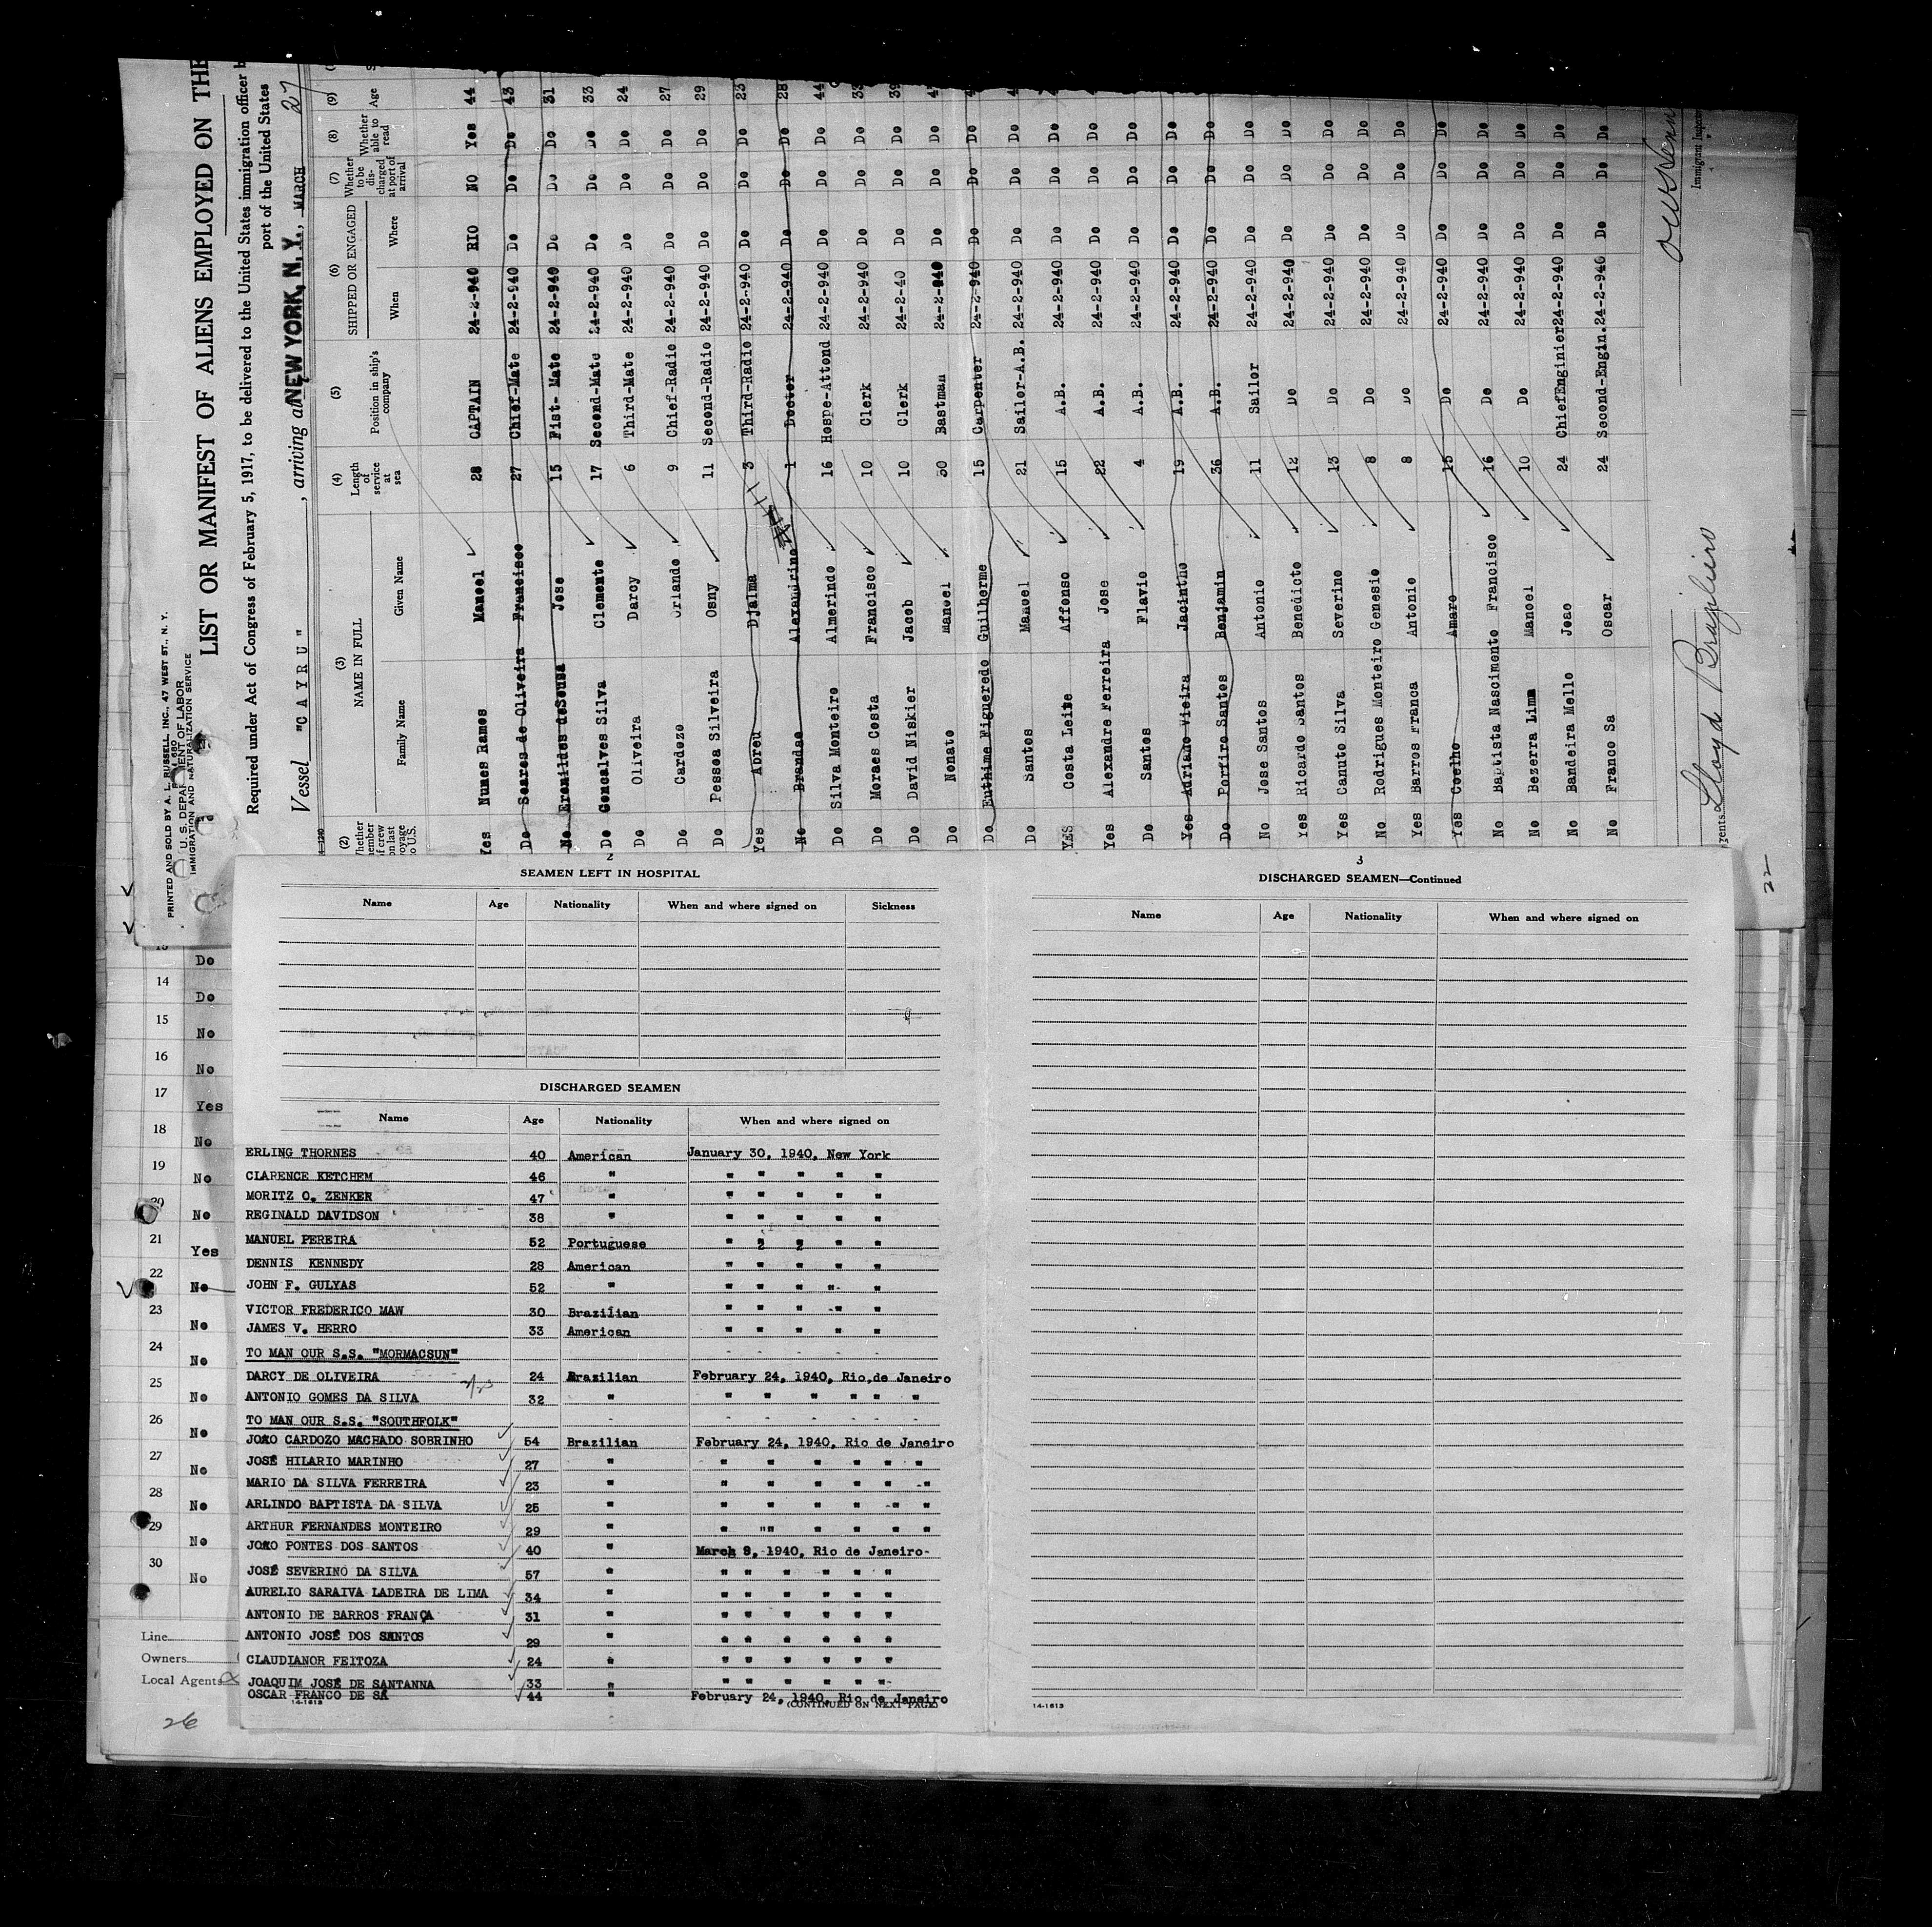 PRINTED AND SOLD BY A. L. RUSSELL, INC., 47 WEST ST., N. Y.
U. S. DEPARTMENT OF LABOR
IMMIGRATION AND NATURALIZATION SERVICE
LIST OR MANIFEST OF ALIENS EMPLOYED ON THE
Required under Act of Congress of February 5, 1917, to be delivered to the United States immigration officer b
port of the United States
Vessel "CAYRU", arriving at NEW YORK, N. Y., MARCH 27
(2) (3) NAME IN FULL (4) Length of service at sea (5) Position in ship's company (6) SHIPPED OR ENGAGED (7) Whether to be discharged at port of arrival (8) Whether able to read (9) Age
Family Name Given Name When Where
Yes Nunes Ramos Manoel 28 CAPTAIN 24-2-940 RIO NO Yes 44
Do Soares de Oliveira Francisco 27 Chief-Mate 24-2-940 Do Do Do 43
No Eronildes deSousa Jose 15 Fist-Mate 24-2-940 Do Do Do 31
Do Goncalves Silva Clemente 17 Second-Mate 24-2-940 Do Do Do 33
Do Oliveira Darcy 6 Third-Mate 24-2-940 Do Do Do 24
Do Cardozo Orlando 9 Chief-Radio 24-2-940 Do Do Do 27
Do Pessoa Silveira Osny 11 Second-Radio 24-2-940 Do Do Do 29
Yes Abreu Djalma 3 Third-Radio 24-2-940 Do Do Do 23
No Brandao Alexandrino 1 Doctor 24-2-940 Do Do Do 28
Do Silva Monteiro Almerindo 16 Hospe-Attond 24-2-940 Do Do Do 44
Do Moraes Costa Francisco 10 Clerk 24-2-940 Do Do Do
Do David Niskier Jacob 10 Clerk 24-2-40 Do Do Do
Do Nonato Manoel 30 Bastman 24-2-940 Do Do Do
Do Euthime Figueredo Guilherme 15 Carpenter 24-2-940 Do Do Do
Do Santos Manoel 21 Sailor-A.B. 24-2-940 Do Do Do
YES Costa Leite Affonso 15 A.B. 24-2-940 Do Do Do
Yes Alexandre Ferreira Jose 22 A.B. 24-2-940 Do Do Do
Do Santos Flavio 4 A.B. 24-2-940 Do Do Do
Yes Adriano Vieira Jacintho 19 A.B. 24-2-940 Do Do Do
Do Porfiro Santos Benjamin 36 A.B. 24-2-940 Do Do Do
No Jose Santos Antonio 11 Sailor 24-2-940 Do Do Do
Yes Ricardo Santos Benedicto 12 Do 24-2-940 Do Do Do
Yes Canuto Silva Severino 13 Do 24-2-940 Do Do Do
No Rodrigues Monteiro Genesio 8 Do 24-2-940 Do Do Do
Yes Barros Franca Antonio 8 Do 24-2-940 Do Do Do
Yes Coelho Amaro 15 Do 24-2-940 Do Do Do
No Baptista Nascimento Francisco 16 Do 24-2-940 Do Do Do
No Bezerra Lima Manoel 10 Do 24-2-940 Do Do Do
No Bandeira Mello Joao 24 ChiefEnginier 24-2-940 Do Do Do
No Franco Sa Oscar 24 Second-Engin. 24-2-940 Do Do Do
Lloyd Brazileiro
Immigrant Inspector
22
SEAMEN LEFT IN HOSPITAL
Name Age Nationality When and where signed on Sickness
DISCHARGED SEAMEN
Name Age Nationality When and where signed on
ERLING THORNES 40 American January 30, 1940, New York
CLARENCE KETCHEM 46 " " " " " "
MORITZ O. ZENKER 47 " " " " " "
REGINALD DAVIDSON 38 " " " " " "
MANUEL PEREIRA 52 Portuguese " " " " "
DENNIS KENNEDY 28 American " " " " "
JOHN F. GULYAS 52 " " " " " "
VICTOR FREDERICO MAW 30 Brazilian " " " " "
JAMES V. HERRO 33 American " " " " "
TO MAN OUR S.S. "MORMACSUN"
DARCY DE OLIVEIRA 24 Brazilian February 24, 1940, Rio de Janeiro
ANTONIO GOMES DA SILVA 32 " " " " " " "
TO MAN OUR S.S. "SOUTHFOLK"
JOAO CARDOZO MACHADO SOBRINHO 54 Brazilian February 24, 1940, Rio de Janeiro
JOSÉ HILARIO MARINHO 27 " " " " " " "
MARIO DA SILVA FERREIRA 23 " " " " " " "
ARLINDO BAPTISTA DA SILVA 25 " " " " " " "
ARTHUR FERNANDES MONTEIRO 29 " " "" " " " "
JOAO PONTES DOS SANTOS 40 " March 8, 1940, Rio de Janeiro
JOSÉ SEVERINO DA SILVA 57 " " " " " " "
AURELIO SARAIVA LADEIRA DE LIMA 34 " " " " " " "
ANTONIO DE BARROS FRANÇA 31 " " " " " " "
ANTONIO JOSÉ DOS SANTOS 29 " " " " " " "
CLAUDIANOR FEITOZA 24 " " " " " " "
JOAQUIM JOSÉ DE SANTANNA 33 " " " " " " "
OSCAR FRANCO DE SÁ 44 " February 24, 1940, Rio de Janeiro
14-1613 (CONTINUED ON NEXT PAGE)
3
DISCHARGED SEAMEN—Continued
Name Age Nationality When and where signed on
14-1613
Do
14 Do
15 No
16 No
17 Yes
18 No
19 No
20 No
21 Yes
22 No
23 No
24 No
25 No
26 No
27 No
28 No
29 No
30 No
Line
Owners
Local Agents
26